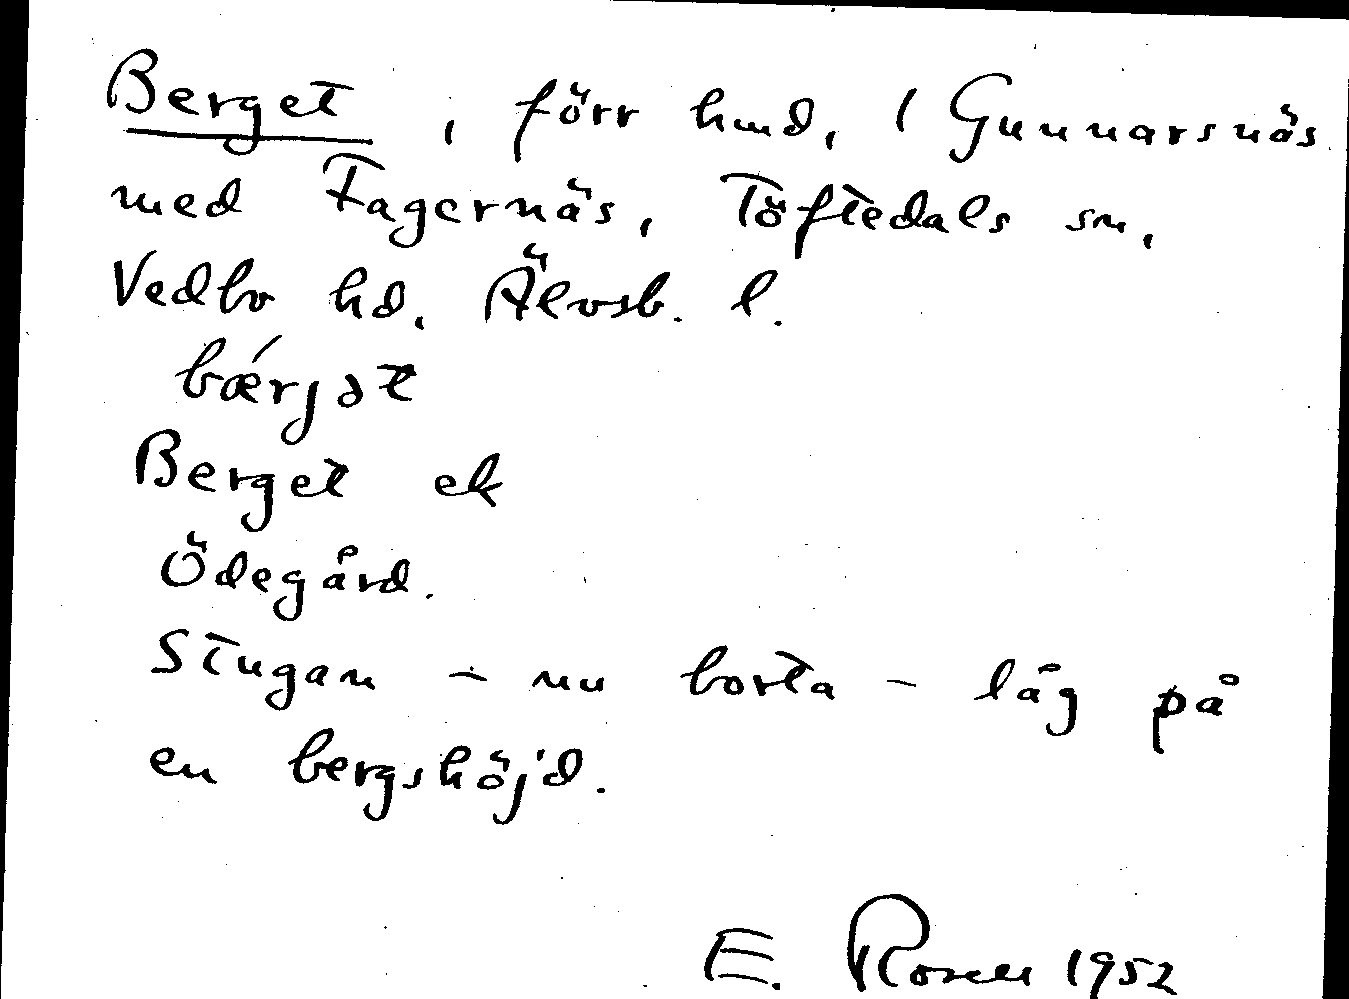 Berget, förr hmd, 1 Gunnarsnäs
med Fagernäs, Töftedals sn,
Vedbo hd. Älvsb. l.
bǽrjət
Berget ek
Ödegård.
Stugan - nu borta - låg på
en bergshöjd.
E. Rosell 1952